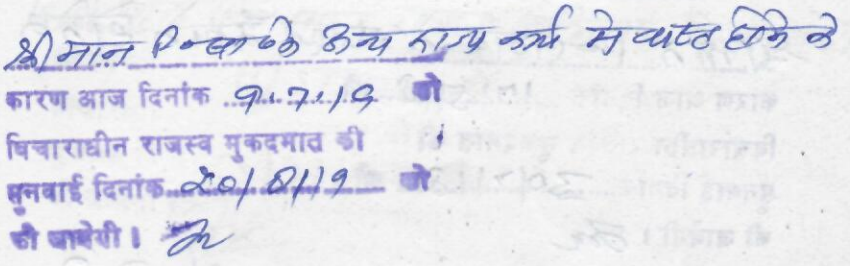 श्रीमान के अन्य राज्य कार्य मे व्यस्त होने के
कारण आज दिनांक 9.7.19 को
विचाराधीन राजस्व मुकदमात की
सुनवाई दिनांक 20/8/19 को
की जावेगी।